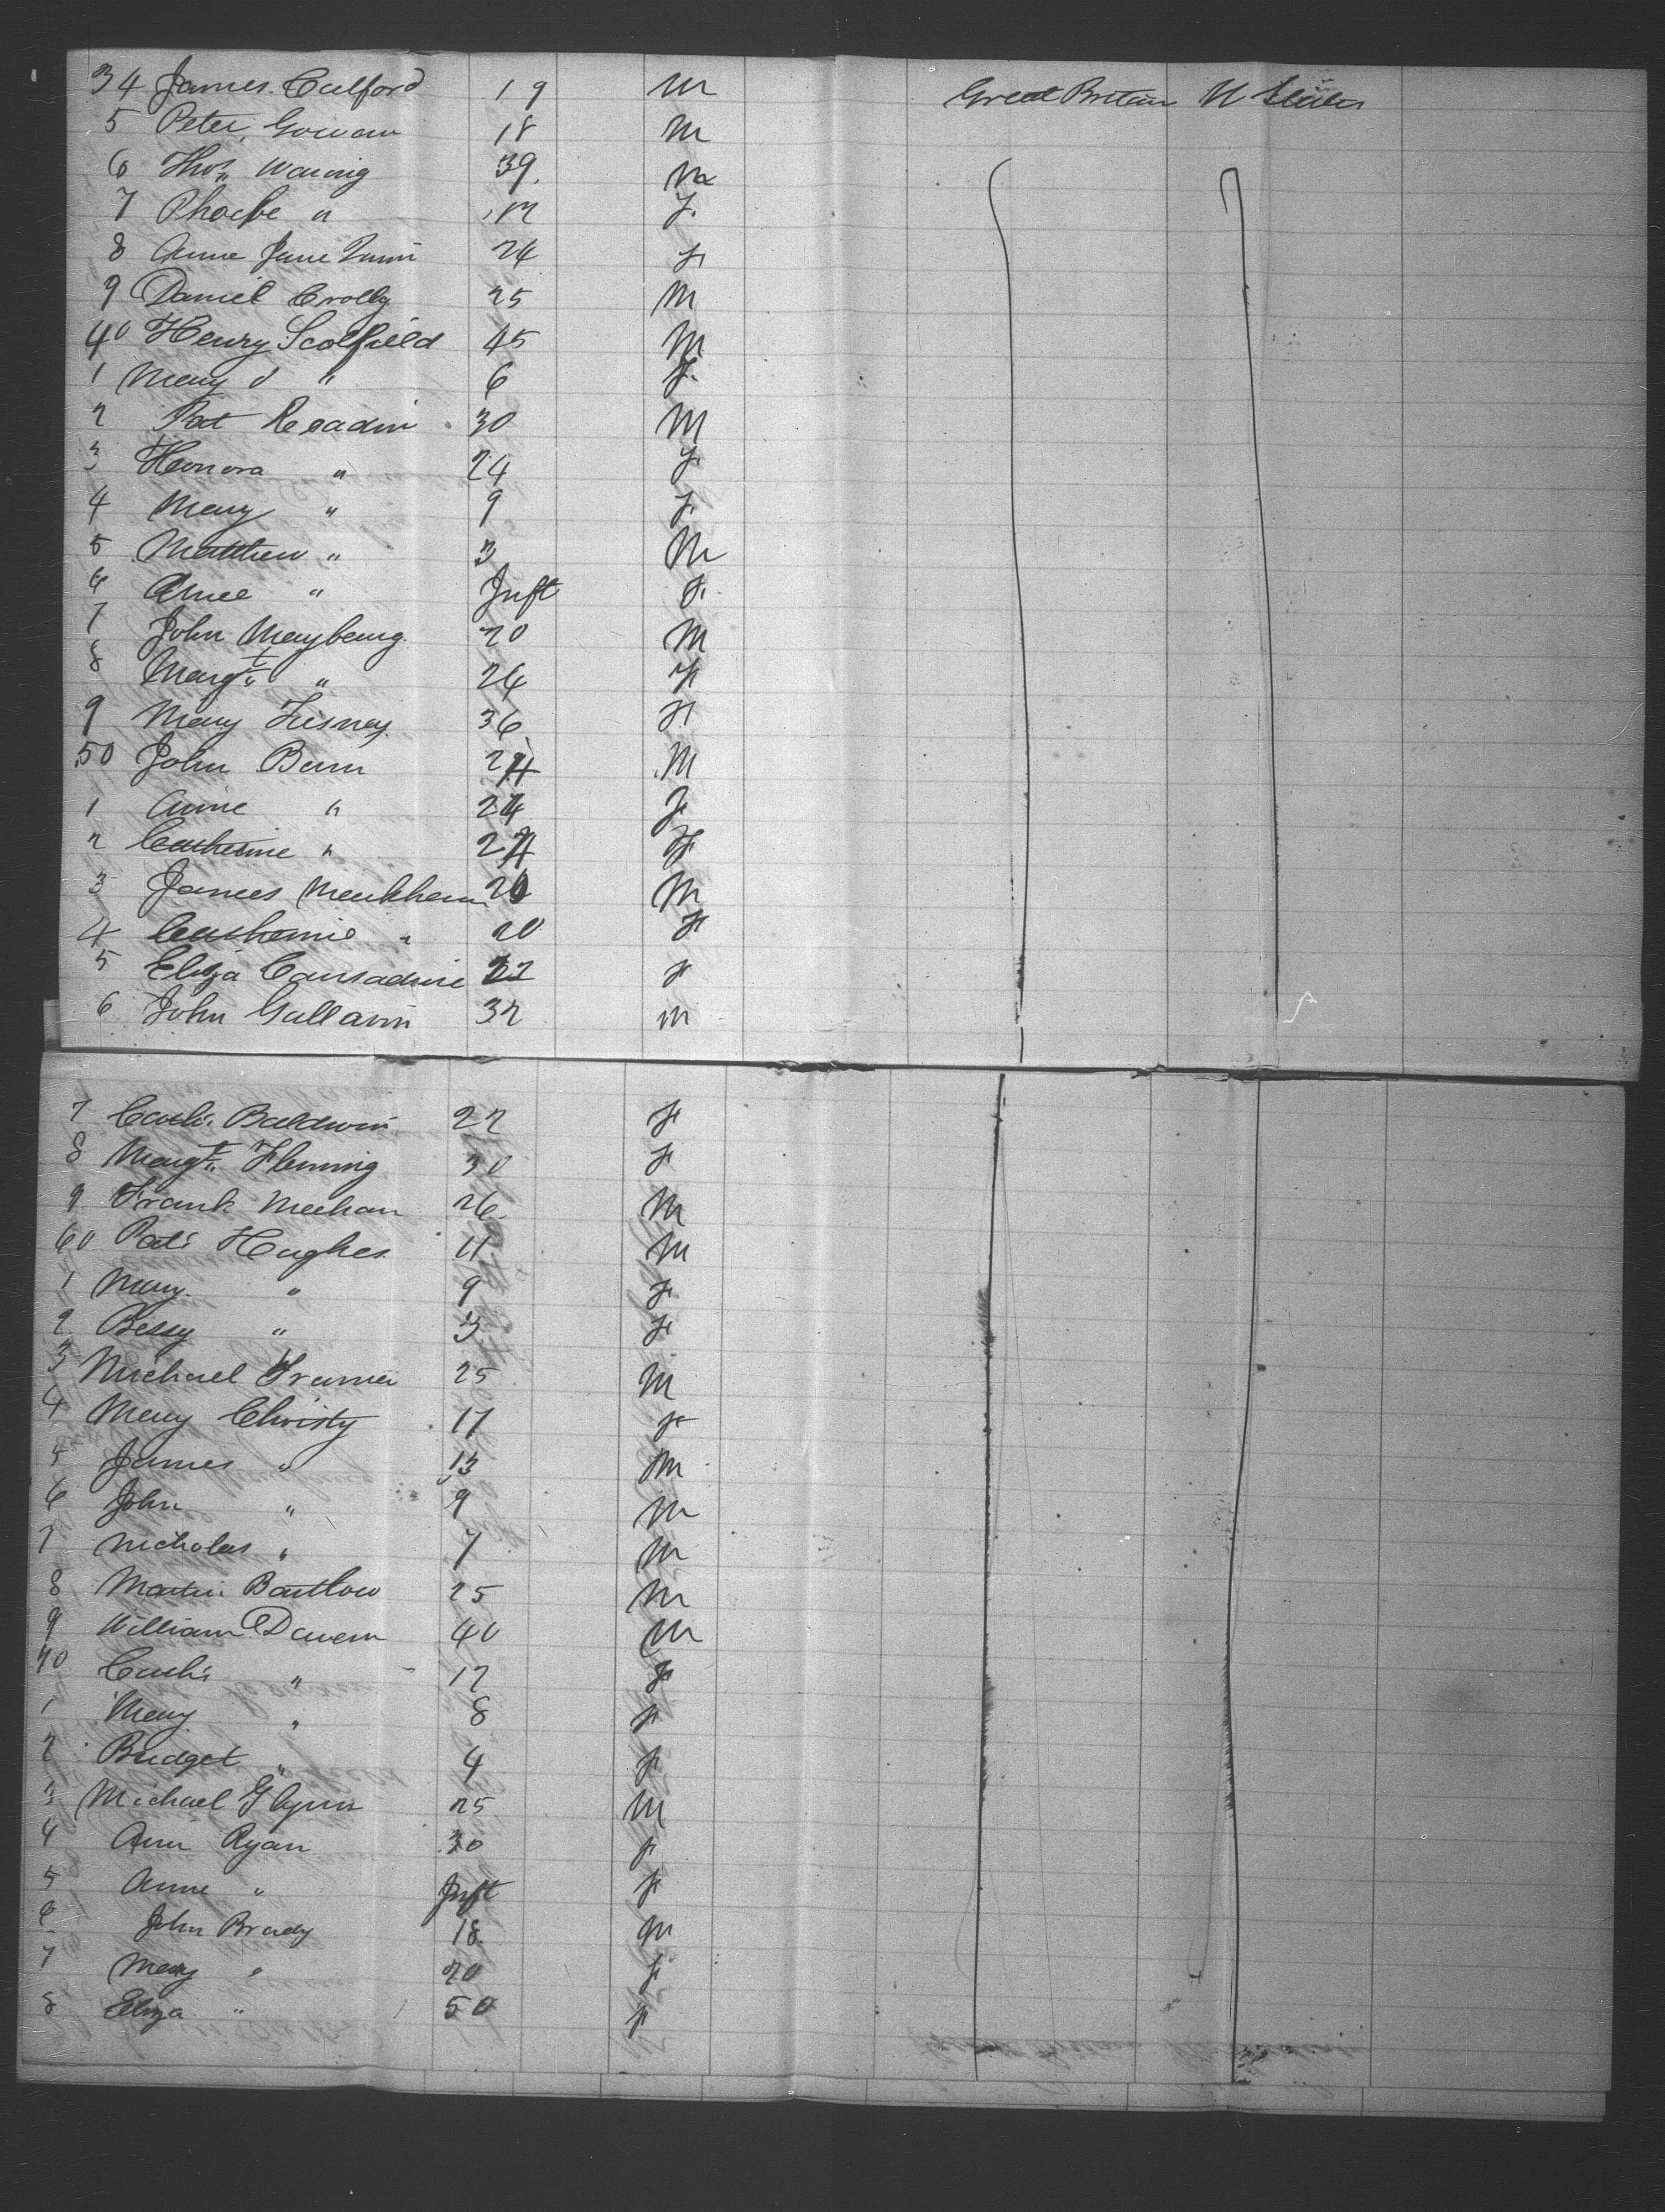 34 James Culford 19 M Great Britain U States
5 Peter Gowan 18 M
6 Thos Waring 39 M
7 Phoebe " F
8 Anne Jane 24 F
9 Daniel Crolly 25 M
40 Henry Scolfield 45 M
1 Mary J " 6 F
2 Pat Readin 30 M
3 Honora " 24 F
4 Mary " 9 F
5 Matthew " 3 M
6 Anne " Inft F
7 John Mayberry 20 M
8 Margt " 24 F
9 Mary 36 F
50 John Bunn M
1 Anne " 24 F
2 Catherine " F
3 James Markham M
4 Catherine " 20 F
5 Eliza Cansadine 22 F
6 John Gallavin 32 M
7 Cath. Baldwin 22 F
8 Margt Fleming 30 F
9 Frank Meehan 26 M
60 Pat Hughes 11 M
1 Mary " 9 F
2 Bessy " 3 F
3 Michael 25 M
4 Mary Christy 17 F
5 James " 13 M
6 John " 9 M
7 Nicholas " 7 M
8 Martin Bartlow 25 M
9 William Davern 40 M
70 Cath " 17 F
1 Mary " 8 F
2 Bridget " 4 F
3 Michael Glynn 25 M
4 Ann Ryan 30 F
5 Anne " Inft F
6 John Brady 18 M
7 Mary " 20 F
8 Eliza " 50 F